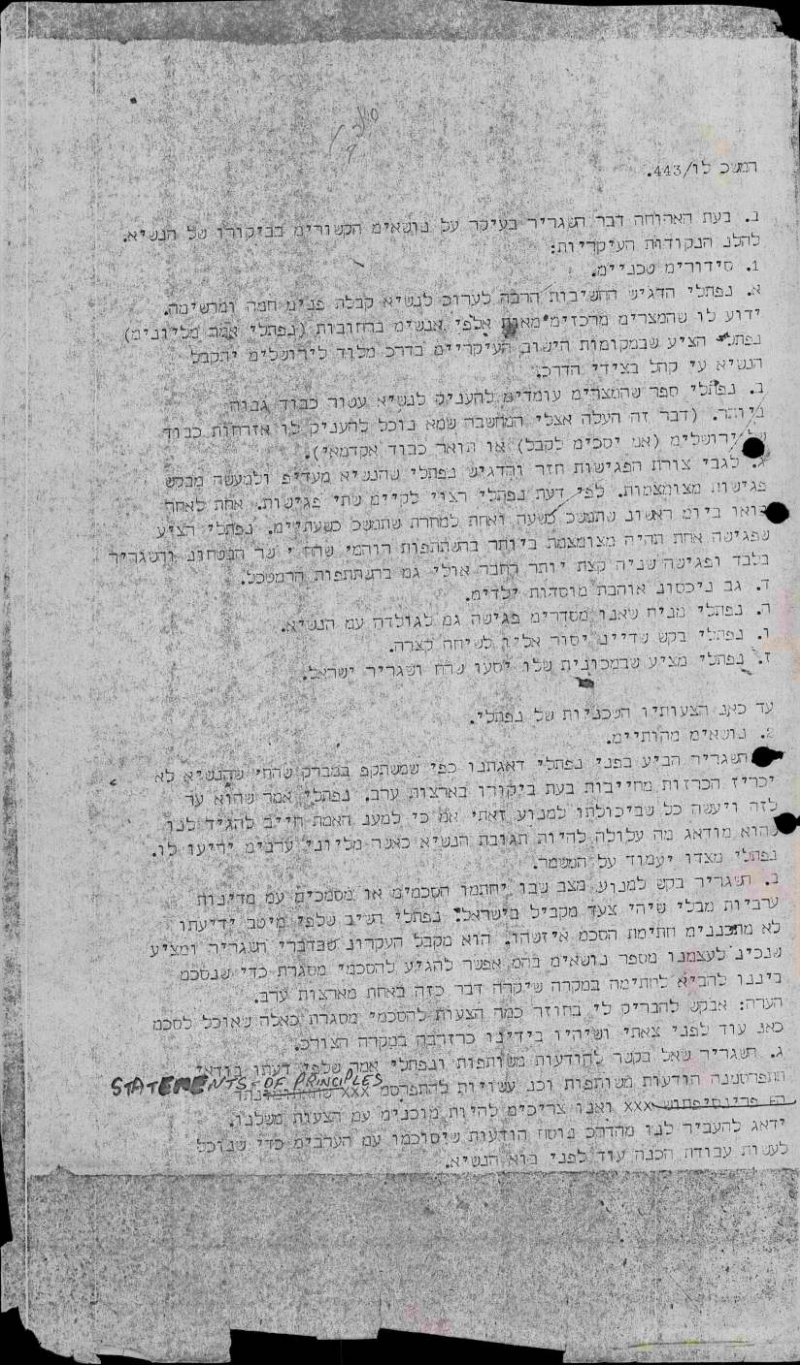 המשך לו/443.
ב. בעת הארוחה דבר השגריר בעיקר על נושאים הקשורים בביקורו של הנשיא.
להלן הנקודות העיקריות:
1. סידורים טכניים.
א. נפתלי הדגיש החשיבות הרבה לערוך לנשיא קבלת פנים חמה ומרשימה.
ידוע לו שהמצרים מרכזים מאות אלפי אנשים ברחובות (נפתלי אמר מליונים)
נפתלי הציע שבמקומות הישוב העיקריים בדרך מלוד לירושלים יתקבל
הנשיא עי קהל בצידי הדרך.
ב. נפתלי ספר שהמצרים עומדים להעניק לנשיא עטור כבוד גבוה
ביותר. (דבר זה העלה אצלי המחשבה שמא נוכל להעניק לו אזרחות כבוד
של ירושלים (אם יסכים לקבל) או תואר כבוד אקדמאי).
ג. לגבי צורת הפגישות חזר והדגיש נפתלי שהנשיא מעדיף ולמעשה מבקש
פגישות מצומצמות. לפי דעת נפתלי רצוי לקיים שתי פגישות. אחת לאחר
בואו ביום ראשון שתמשך כשעה ואחת למחרת שתמשך כשעתיים. נפתלי הציע
שפגישה אחת תהיה מצומצמת ביותר בהשתתפות רוהמ שהח שר הבטחון והשגריר
בלבד ופגישה שניה קצת יותר רחבה אולי גם בהשתתפות הרמטכל.
ד. גב ניכסון אוהבת מוסדות ילדים.
ה. נפתלי מניח שאנו מסדרים פגישה גם לגולדה עם הנשיא.
ו. נפתלי בקש שדיין יסור אליו לשיחה קצרה.
ז. נפתלי מציע שבמכונית שלו יסעו שהח ושגריר ישראל.
עד כאן הצעותיו הטכניות של נפתלי.
2. נושאים מהותיים.
השגריר הביע בפני נפתלי דאגתנו כפי שמשתקף במברק שהחי שהנשיא לא
יכריז הכרזות מחייבות בעת ביקורו בארצות ערב. נפתלי אמר שהוא ער
לזה ויעשה כל שביכולתו למנוע זאתי אם כי למען האמת חייב להגיד לנו
שהוא מודאג מה עלולה להיות תגובת הנשיא כאשר מליוני ערבים יריעו לו.
נפתלי מצדו יעמוד על המשמר.
ב. השגריר בקש למנוע מצב שבו יחתמו הסכמים או מסמכים עם מדינות
ערביות מבלי שיהי צעד מקביל בישראל. נפתלי השיב שלפי מיטב ידיעתו
לא מתכננים חתימת הסכם איזשהו. הוא מקבל העקרון שבדברי השגריר ומציע
שנכין לעצמנו מספר נושאים בהם אפשר להגיע להסכמי מסגרת כדי שנסכם
ביננו להביא לחתימה במקרה שיקרה דבר כזה באחת מארצות ערב.
הערה: אבקש להבריק לי בחוזר כמה הצעות להסכמי מסגרת כאלה שאוכל לסכם
כאן עוד לפני צאתי ושיהיו בידינו כרזרבה במקרה הצורך.
ג. השגריר שאל בקשר להודעות משותפות ונפתלי אמר שלפי דעתו בודאי
תתפרסמנה הודעות משותפות וכן עשויות להתפרסם XXX STATEMENTS OF PRINCIPLES
XXX ואנו צריכים להיות מוכנים עם הצעות משלנו.
ידאג להעביר לנו מהדרך נוסח הודעות שיסוכמו עם הערבים כדי שנוכל
לעשות עבודת הכנה עוד לפני בוא הנשיא.